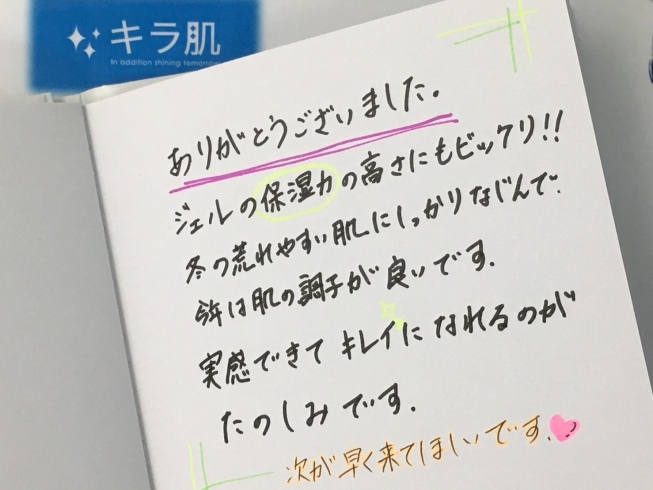 キラ肌
In addition shining tomorrow
ありがとうございました。
ジェルの保湿力の高さにもビックリ!!
冬の荒れやすい肌にしっかりなじんで
今年は肌の調子が良いです。
実感できてキレイになれるのが
たのしみです。
次が早く来てほしいです。